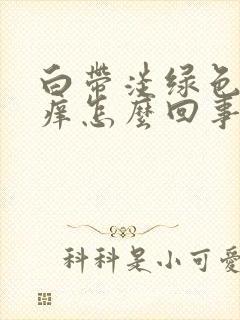 白帶淡绿色
痒怎麽回事
科科是小可愛